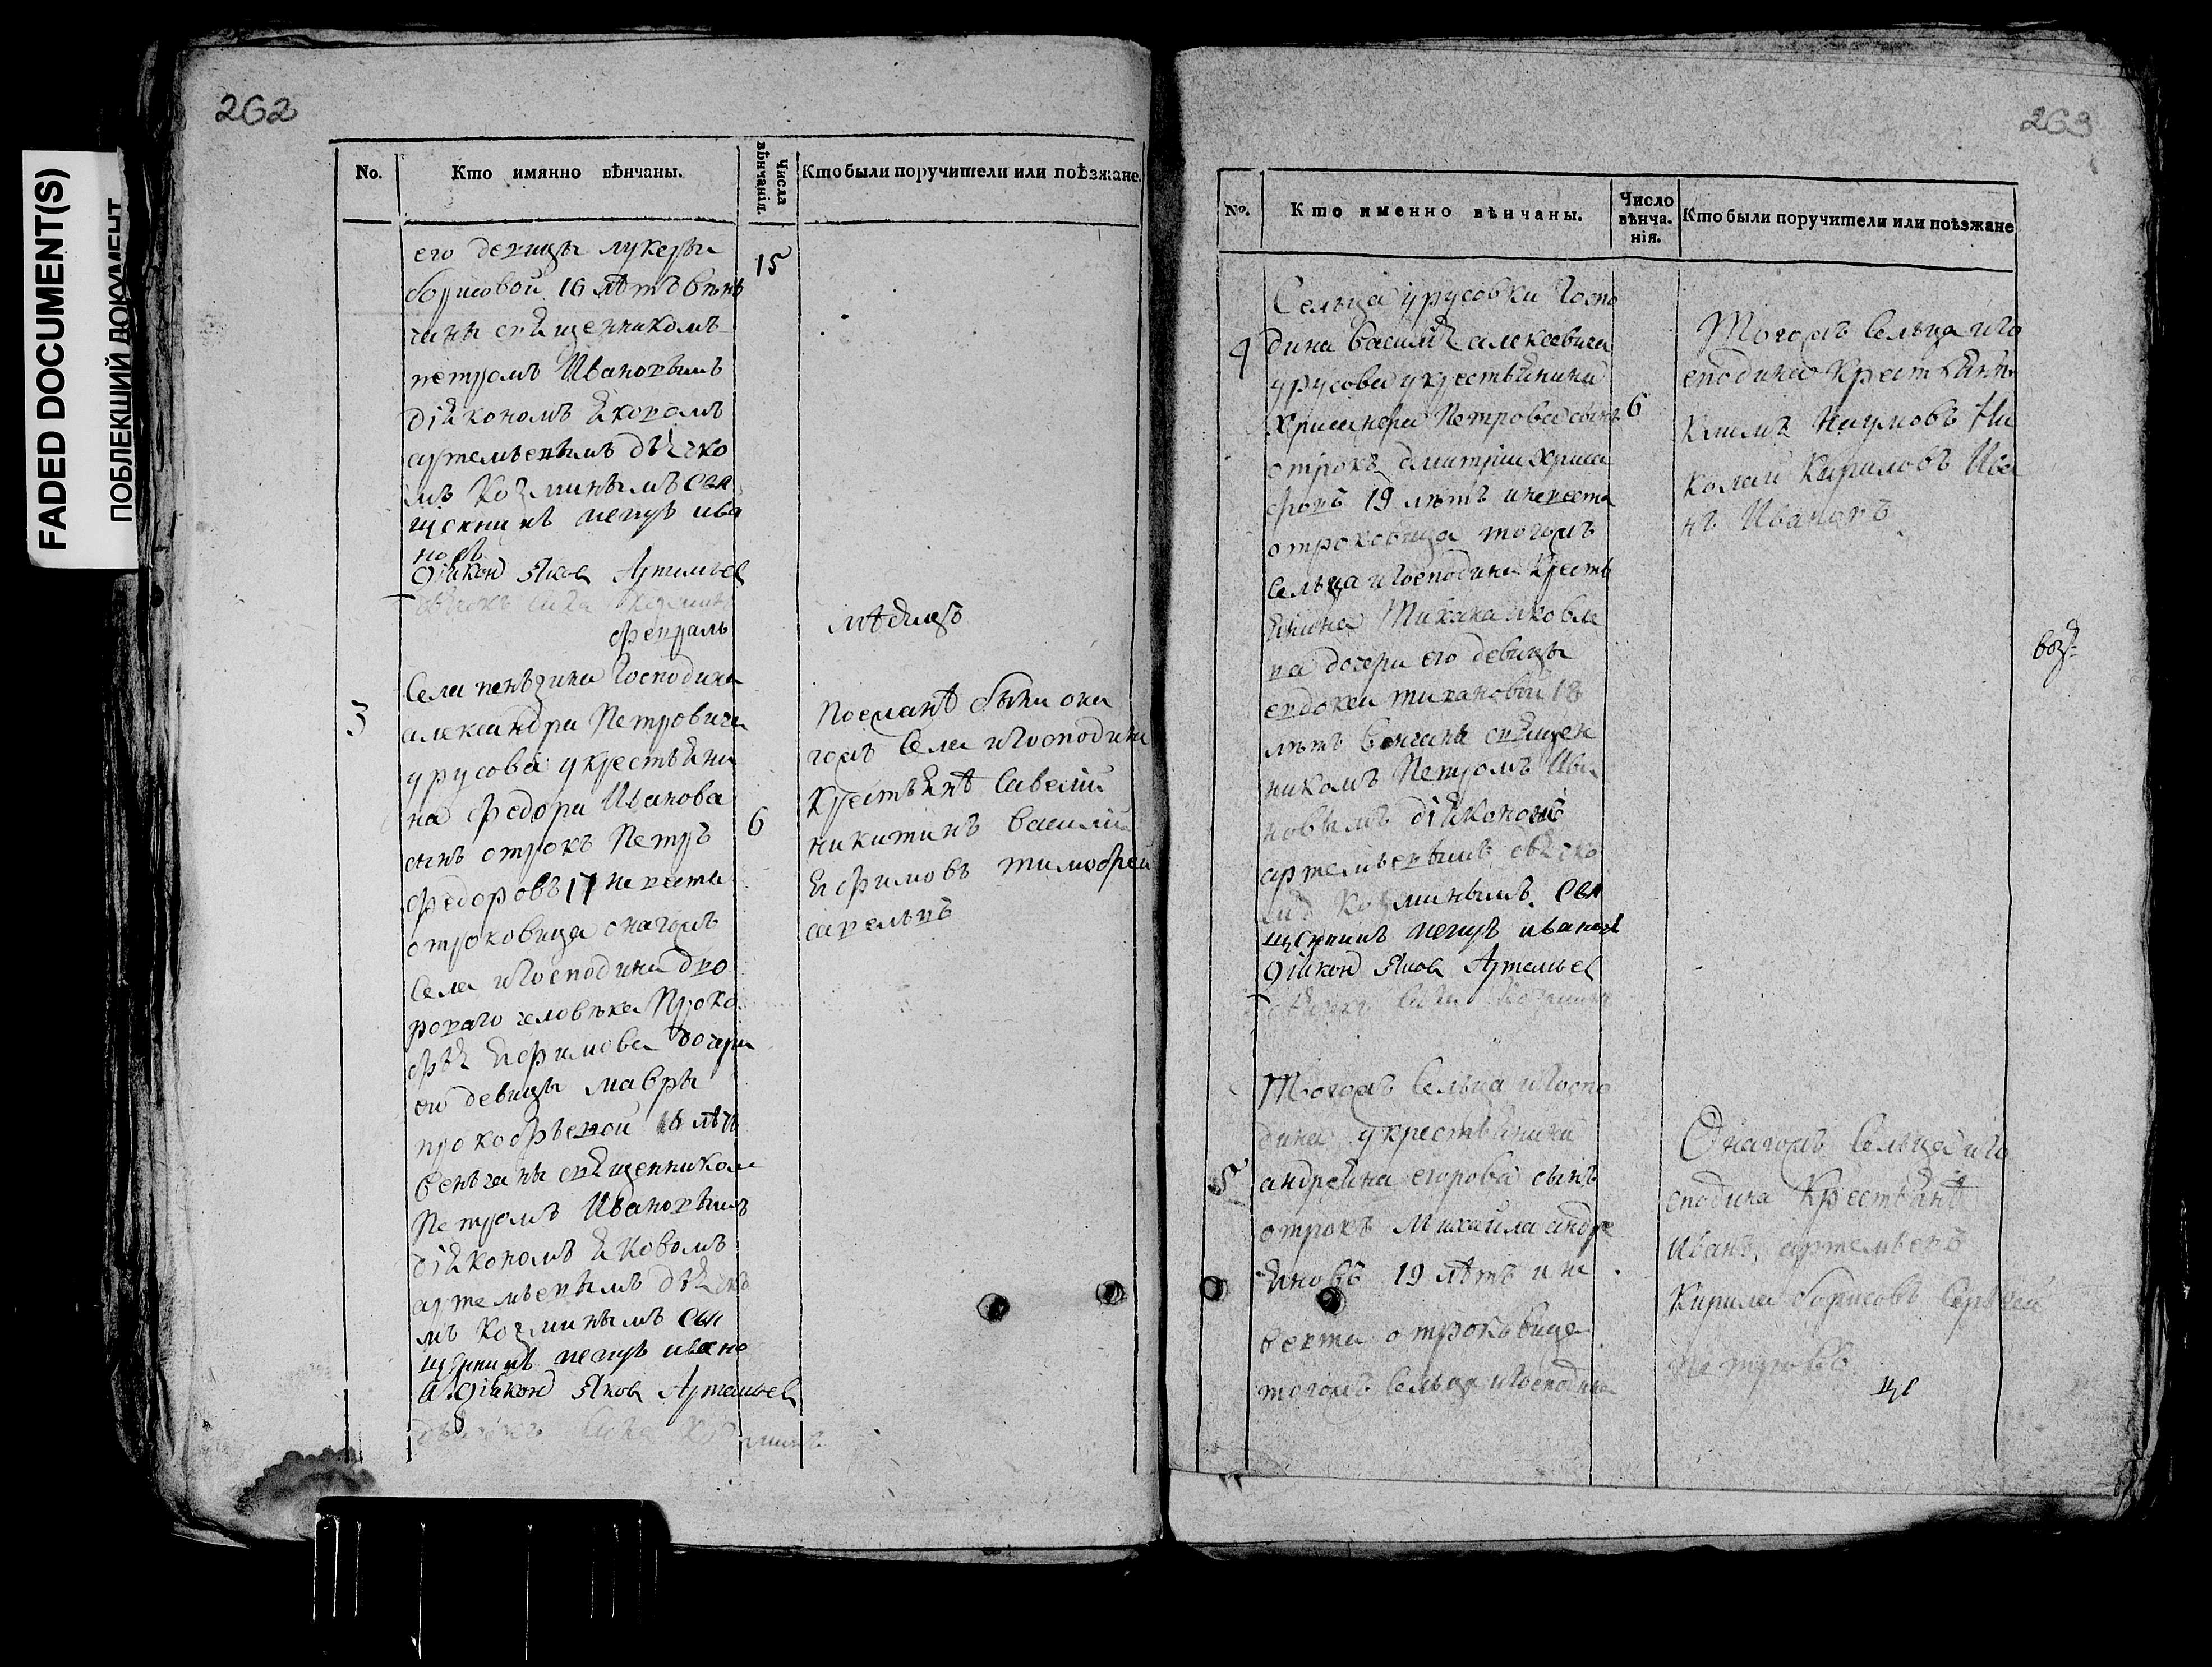 FADED DOCUMENT(S)
ПОБЛЕКЛИЙ ДОКУМЕНТ
262
No.
Кто имянно вѣнчаны.
Числа вѣнчанія.
Кто были поручители или поѣзжане.
его девицы лукерьи
борисовой 16 лѣтъ вѣнъ
чаны священникомъ
петромъ Ивановымъ
діякономъ яковомъ
артемьевымъ дьячко
мъ Козминымъ свя
щенникъ петръ ива
новъ
діяконъ Яковъ Артемьевъ
дьячокъ Козминъ
февраль
мѣсяцъ
15
3
Села пенъзина Господина
александра Петровича
урусова укрестьяни
на Федора Иванова
сынъ отрокъ Петръ
федоровъ 17 невеста
отроковица онагожъ
Села иГосподина дво
роваго человѣка Проко
фья ефимова дочери
ево девицы мавры
прокофьевой 16 лѣтъ
венъчаны священником
Петромъ Ивановымъ
діякономъ яковомъ
артемьевымъ дьячко
мъ Козминымъ свя
щенникъ петръ ивано
въ діяконъ Яковъ Артемьевъ
дьячокъ Козминъ
6
поезжанѣ были она
гожъ Села иГосподина
Крестьянѣ Савелій
никитинъ василий
ефимовъ тимофей
савельвъ
263
No.
Кто именно вѣнчаны.
Число вѣнча-нія.
Кто были поручители или поѣзжане
4
Сельца урусовки Госпо
дина василья алексевича
урусова укрестьянина
Хрисанфа Петрова сынъ
отрокъ дмитрии хриса
фовъ 19 лѣтъ иневеста
отроковица тогожъ
Сельца иГосподина Кресть
янина Тихана яковле
ва дочери его девицы
евдокеи тихановой 18
лѣтъ венчаны священ
никомъ Петромъ Ива
новымъ діякономъ
артемьевымъ дьячко
мъ Козминымъ свя
щенникъ петръ ивановъ
діяконъ Яковъ Артемьевъ
дьячокъ Козминъ
6
Тогожъ Сельца иГо
сподина Крестьяни
Климъ Наумовъ Ни
колай Кириловъ Ива
нъ Ивановъ
5
Тогожъ Сельца иГоспо
дина укрестьянина
андреяна егорова сынъ
отрокъ Михайла андре
яновъ 19 лѣтъ и не
веста отроковица
тогожъ Сельца иГосподина
Онагожъ Сельца иГо
сподина Крестьянѣ
Иванъ артемьевъ
Кирила борисовъ Сергей
петровъ